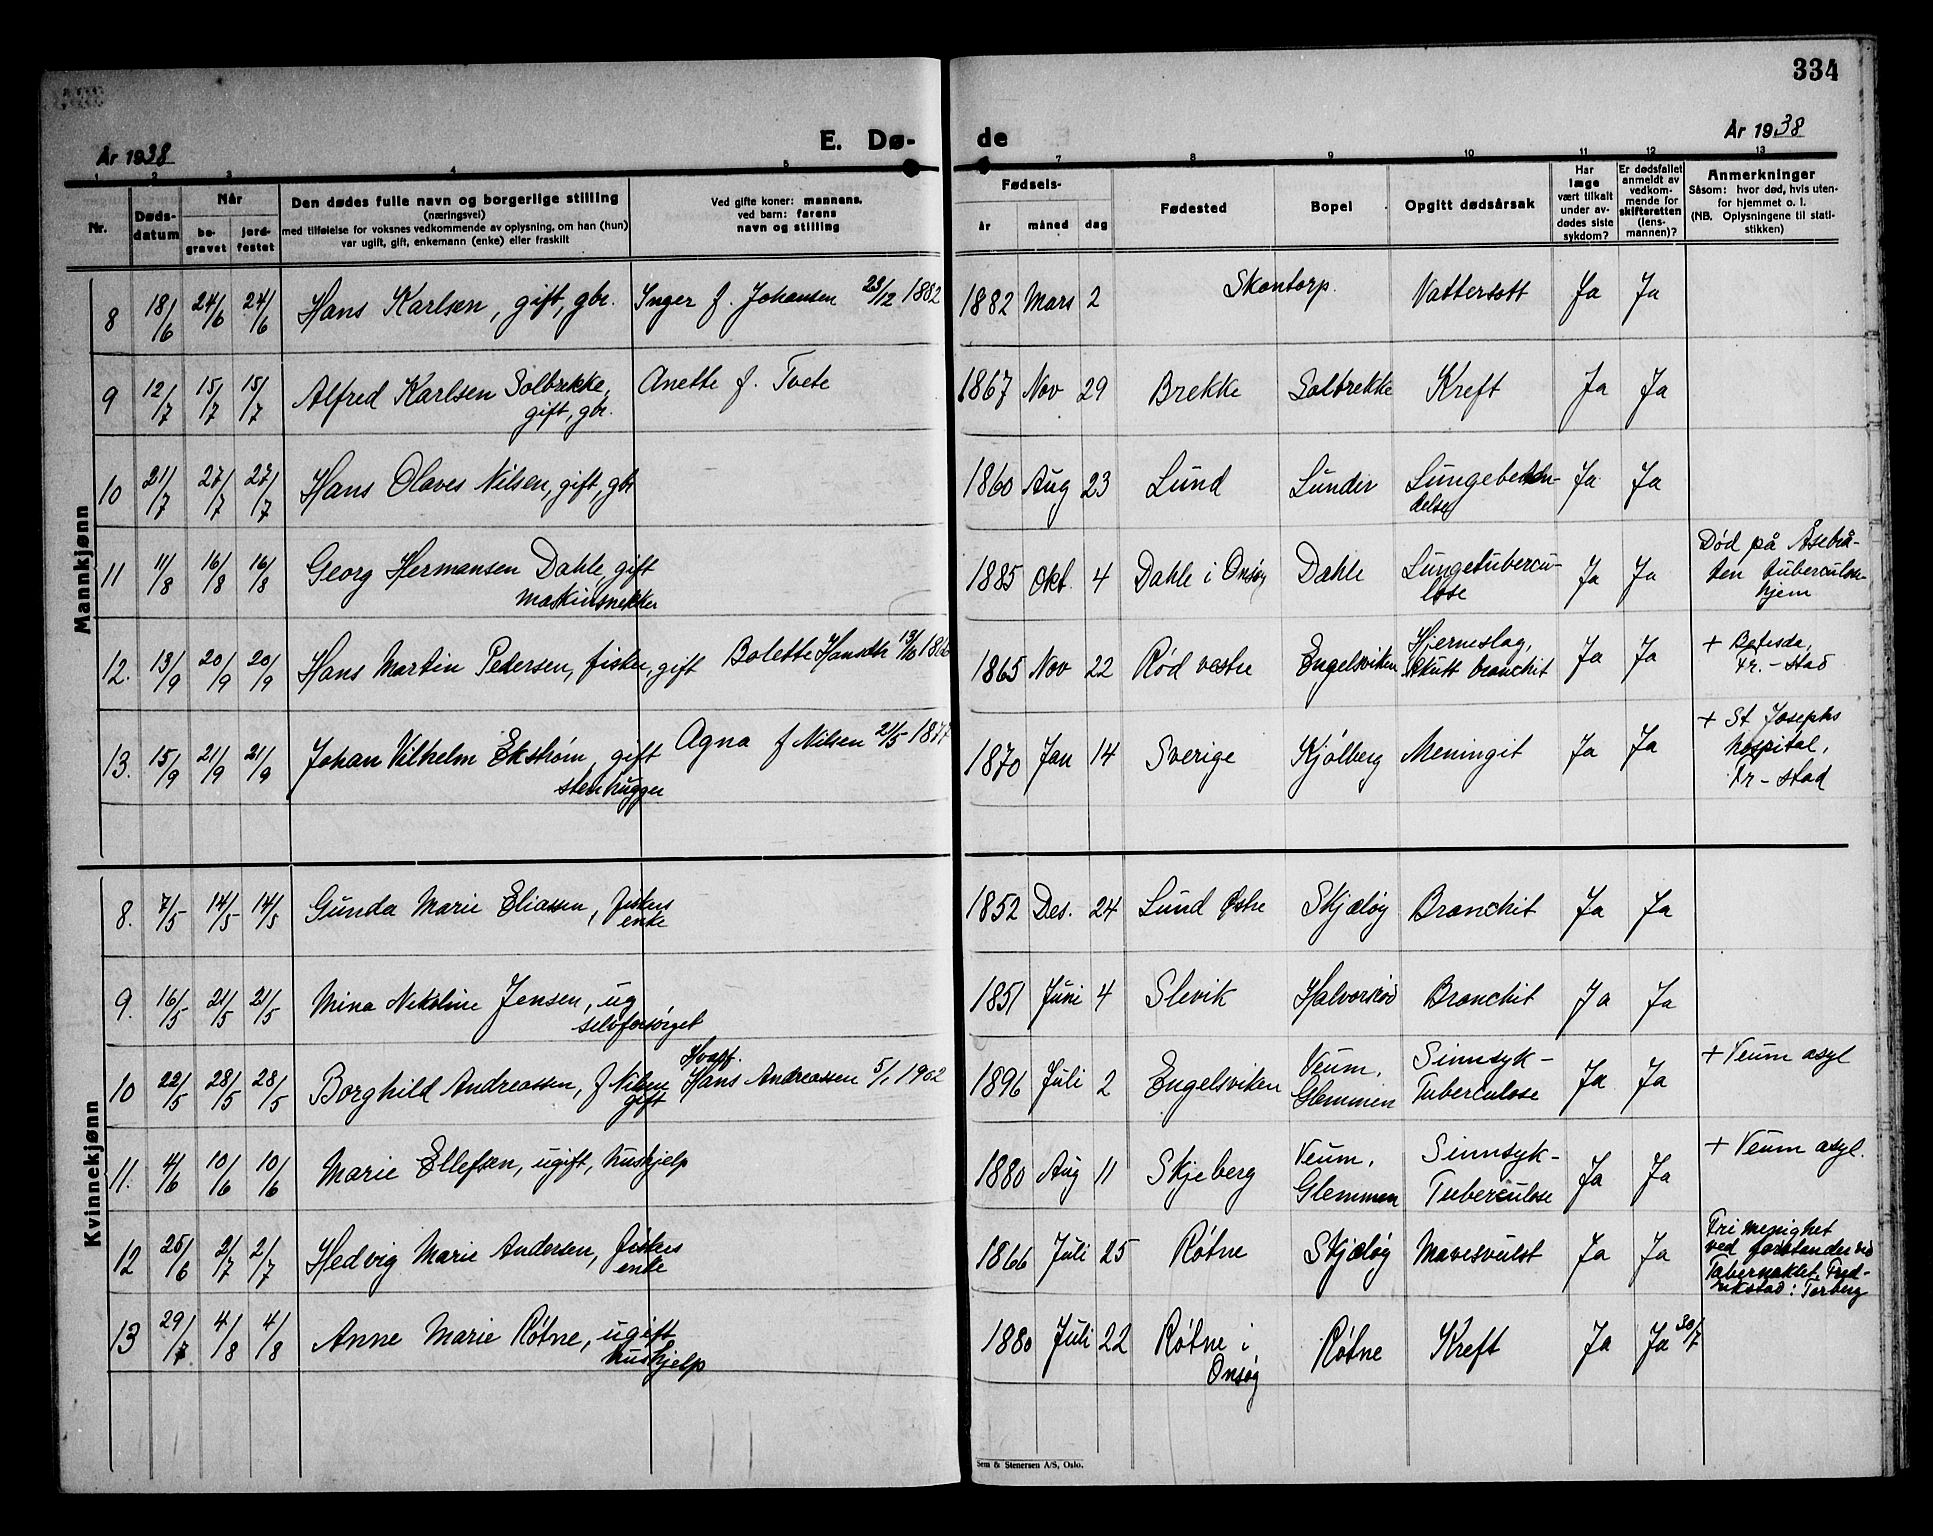 334
År 1938
E. Dø-
de
År 1938
1 2 3 4 5 7 8 9 10 11 12 13
Nr.
Døds-
datum
Når
be-
gravet
jord-
festet
Den dødes fulle navn og borgerlige stilling
(næringsvei)
med tilføielse for voksnes vedkommende av oplysning, om han (hun)
var ugift, gift, enkemann (enke) eller fraskilt
Ved gifte koner: mannens,
ved barn: farens
navn og stilling
Fødsels-
år måned dag
Fødested
Bopel
Opgitt dødsårsak
Har
læge
vært tilkalt
under av-
dødes siste
sykdom?
Er dødsfallet
anmeldt av
vedkom-
mende for
skifteretten
(lens-
mannen)?
Anmerkninger
Såsom: hvor død, hvis uten-
for hjemmet o. l.
(NB. Oplysningene til stati-
stikken)
Mannkjønn
8 18/6 24/6 24/6 Hans Karlsen, gift, gbr. Inger f. Johansen 23/12 1882 1882 Mars 2 Skontorp. Vattersott Ja Ja
9 12/7 15/7 15/7 Alfred Karlsen Solbrekke, Anette f. Tvete 1867 Nov 29 Brekke Solbrekke Kreft Ja Ja
gift, gbr.
10 21/7 27/7 27/7 Hans Olaves Nilsen, gift, gbr 1860 Aug 23 Lund Lunder Lungebeten- Ja Ja
delse
11 11/8 16/8 16/8 Georg Hermansen Dahle, gift 1885 Okt. 4 Dahle i Onsøy Dahle Lungetubercu- Ja Ja Død på Åsebrå-
maskinsnekker lose ten tuberculose-
hjem
12. 13/9 20/9 20/9 Hans Martin Pedersen, fisker, gift Bolette Hansdtr 13/10 1866 1865 Nov 22 Rød vestre Engelsviken Hjerneslag, Ja Ja + Betesda,
Akutt bronchit Fr.-stad
13. 15/9 21/9 21/9 Johan Vilhelm Ekstrøm, gift Agna f Nilsen 21/5 1877 1870 Jan 14 Sverige Kjølberg Meningit Ja Ja + St. Josephs
stenhugger hospital,
Fr-stad
Kvinnekjønn
8. 7/5 14/5 14/5 Gunda Marie Eliassen, fiskers 1852 Des. 24 Lund Østre Skjæløy Bronchit Ja Ja
enke
9. 16/5 21/5 21/5 Mina Nikoline Jensen, ug 1851 Juni 4 Slevik Halvorsrød Bronchit Ja Ja
selvforsørget
10 22/5 28/5 28/5 Borghild Andreassen, f Nilsen Hans Andreassen 5/1 1902 1896 Juli 2 Engelsviken Veum, Sinnsyk- Ja Ja + Veum asyl
gift Glemmen Tuberculose
11. 4/6 10/6 10/6 Marie Ellefsen, ugift, hushjelp 1880 Aug 11 Skjeberg Veum, Sinnsyk- Ja Ja + Veum asyl.
Glemmen Tuberculose
12 26/6 2/7 2/7 Hedvig Marie Andersen, fiskers 1866 Juli 25 Røtne Skjæløy Mavesvulst Ja Ja Fri menighet
enke ved forstander ved
Tabernaklet, Fred-
rikstad: Torberg
13 29/7 4/8 4/8 Anne Marie Røtne, ugift 1880 Juli 22 Røtne i Røtne Kreft Ja Ja 30/7
hushjelp Onsøy
Sem & Stenersen A/S, Oslo.